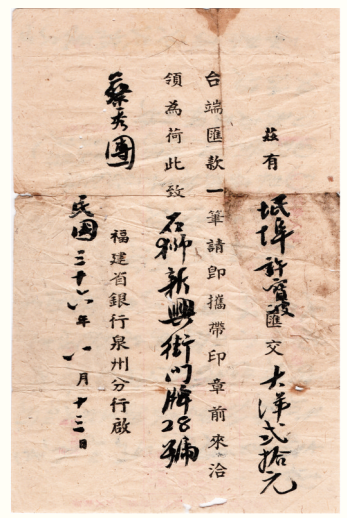 茲有岷埠許寶敏匯交大洋弍拾元
台端匯款一筆請即攜帶印章前來洽
領為荷此致石獅新興街門牌28號
蔡秀團
福建省銀行泉州分行啟
民國三十六年八月十三日